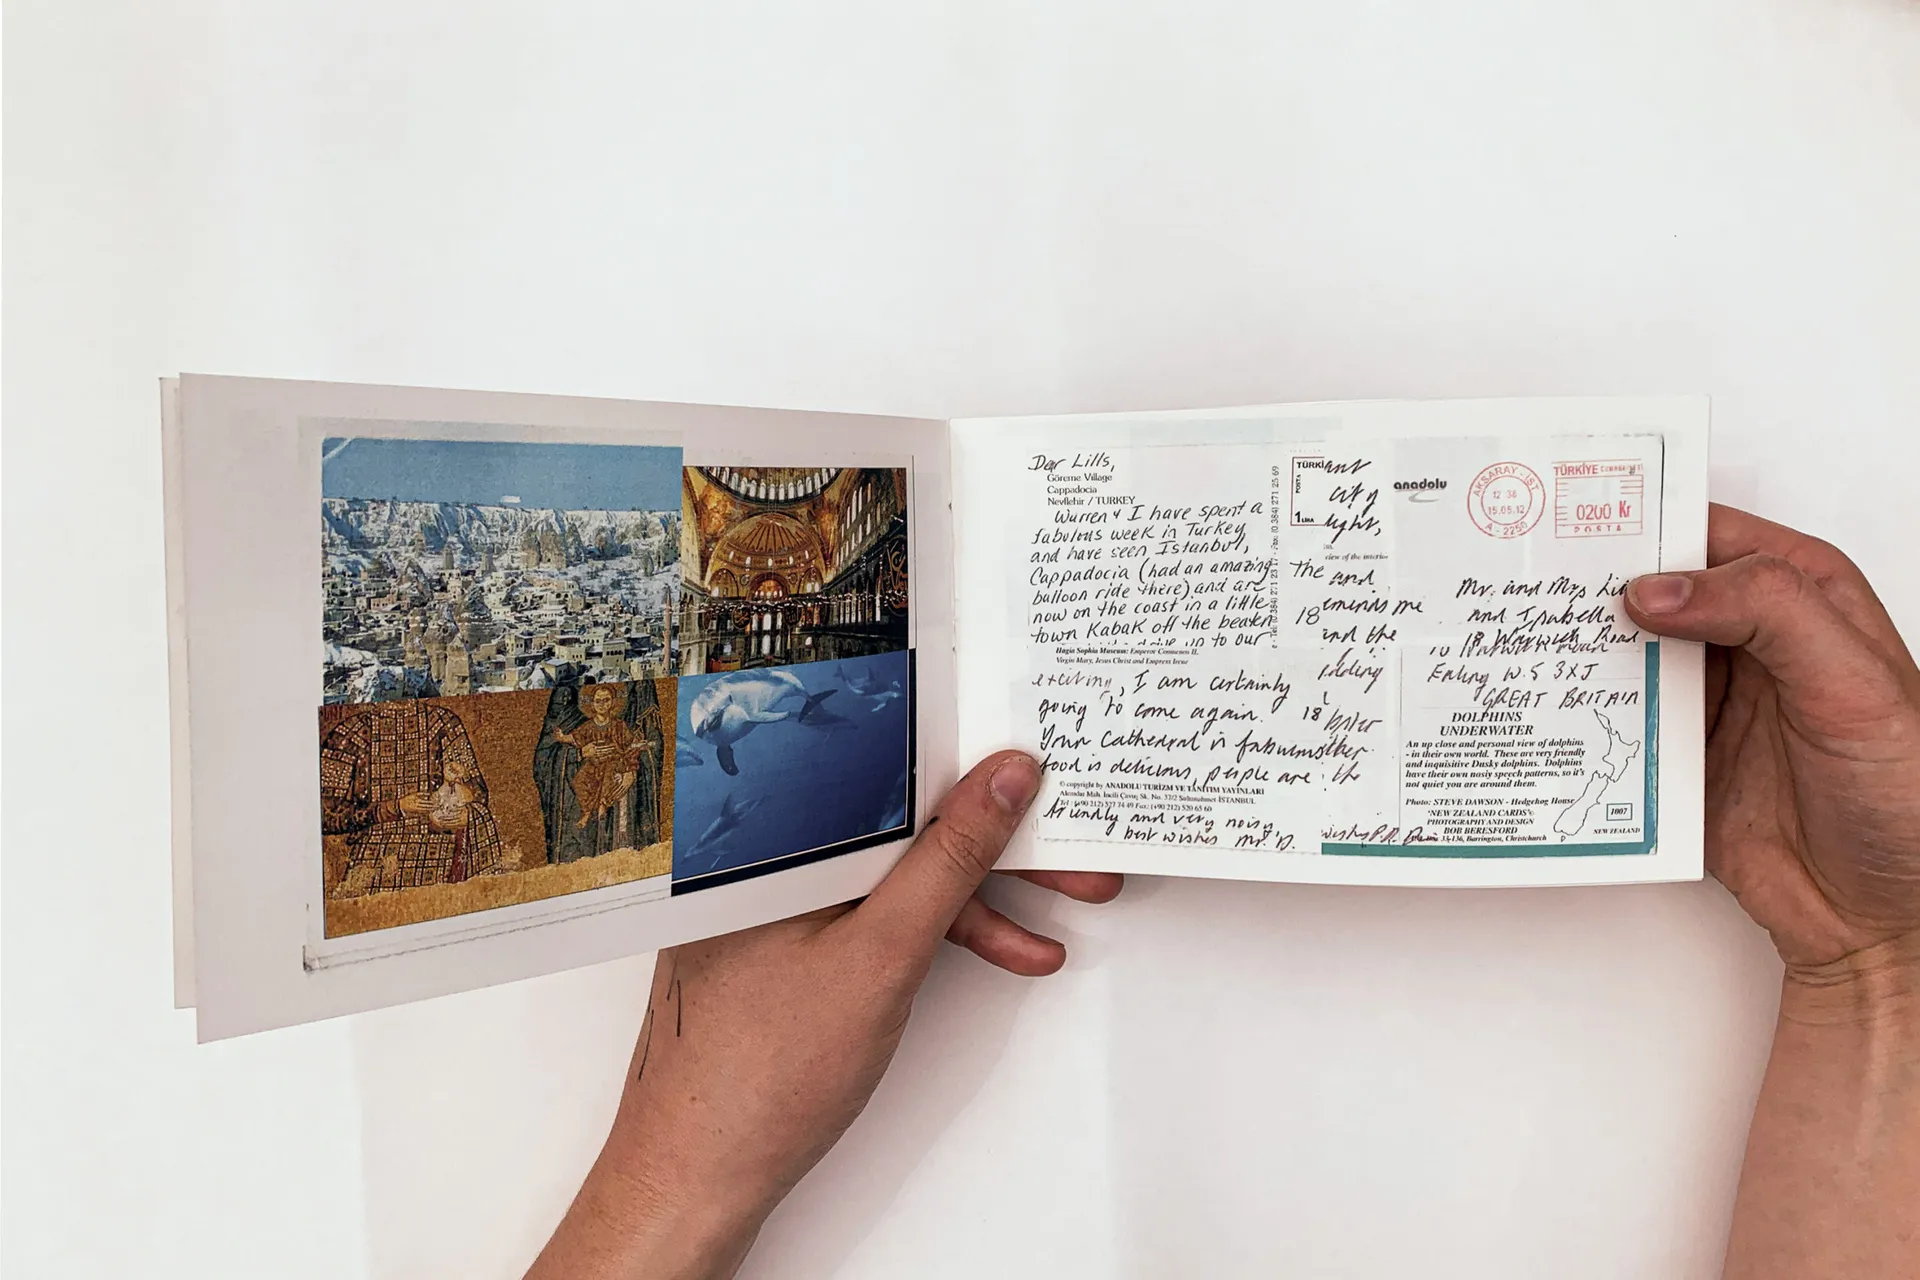 Dear Lills,
Göreme Village
Cappadocia
Nevşehir / TURKEY
Warren & I have spent a
fabulous week in Turkey
and have seen Istanbul,
Cappadocia (had an amazing
balloon ride there) and are
now on the coast in a little
town Kabak off the beaten
up to our
Hagia Sophia Museum: Emperor Comnenos II.
Virgin Mary, Jesus Christ and Empress Irene
exciting, I am certainly
going to come again.
Your Cathedral is
food is delicious, people are
© copyright by ANADOLU TURİZM VE TANITIM YAYINLARI
Alemdar Mah. İncili Çavuş Sk. No. 37/2 Sultanahmet İSTANBUL
Tel : (+90 212) 527 74 49 Fax: (+90 212) 520 65 60
friendly and very noisy,
best wishes Mr. D.
TÜRKİ
POSTA
1 LİRA
city
light,
view of the interio
the and
18
and the
18
the
anadolu
AKSARAY-İST
15.05.12
A-2250
TÜRKİYE CUMHURİYETİ
0200 Kr
POSTA
Mr. and Mrs
and Isabella
18 Warwick Road
Ealing W.5 3XJ
GREAT BRITAIN
DOLPHINS
UNDERWATER
An up close and personal view of dolphins
- in their own world. These are very friendly
and inquisitive Dusky dolphins. Dolphins
have their own nosiy speech patterns, so it's
not quiet you are around them.
Photo: STEVE DAWSON - Hedgehog House
'NEW ZEALAND CARDS'©
PHOTOGRAPHY AND DESIGN
BOB BERESFORD
33-136, Barrington, Christchurch
1007
NEW ZEALAND